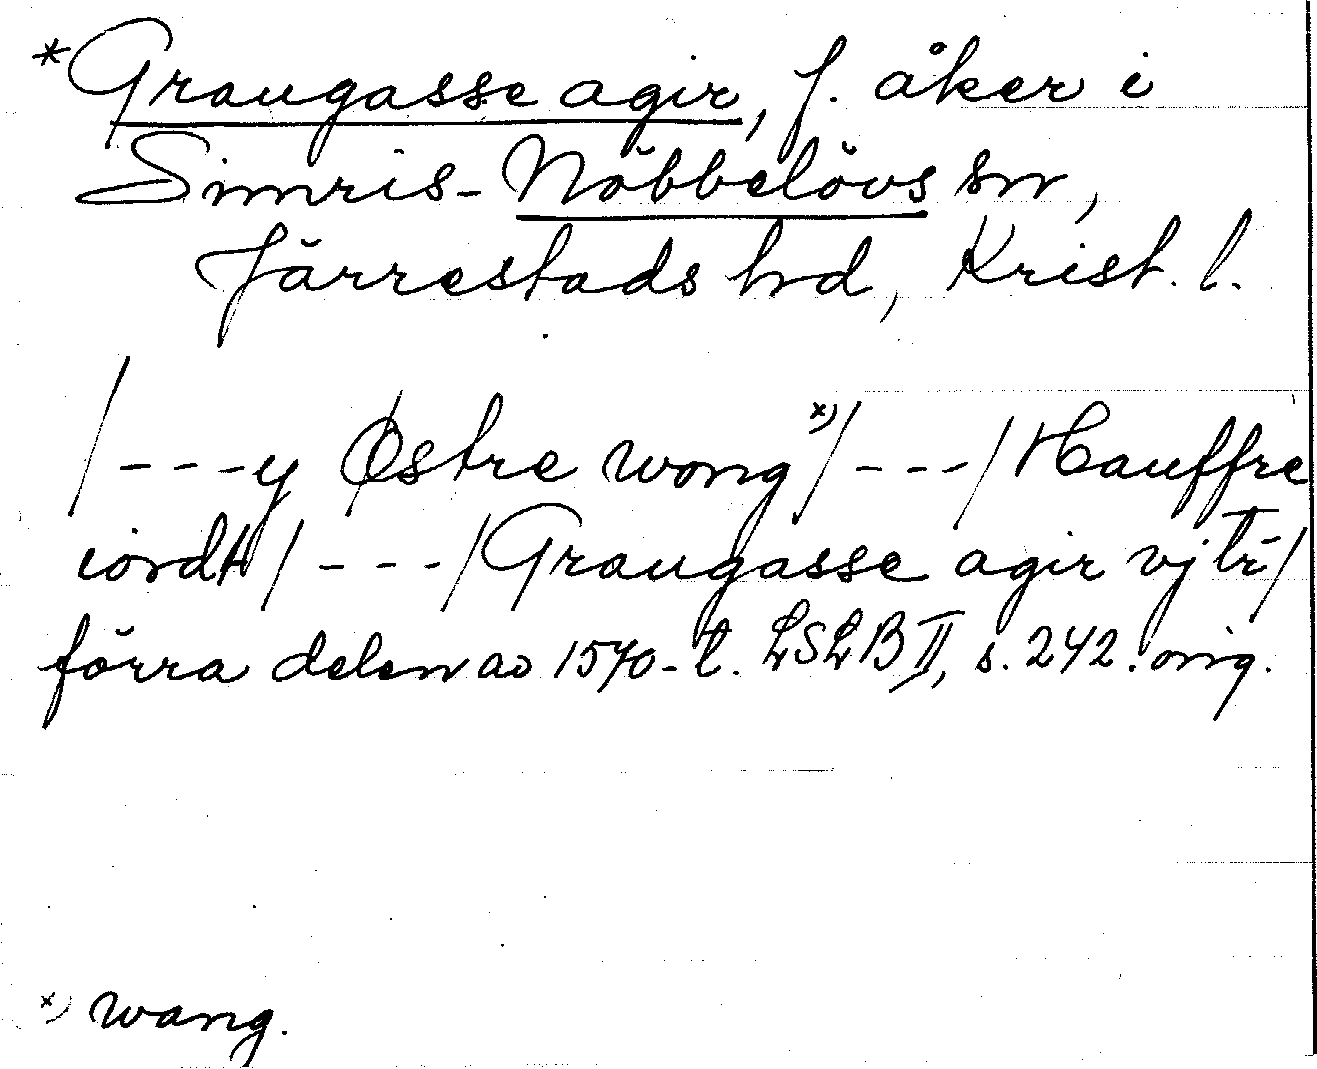 *Graugasse agir, f. åker i
Simris-Nöbbelövs sn,
Järrestads hrd, Krist. l.
/---y Østre wong x)/---/Hauffre
iordt/---/Graugasse agir vj tr/
förra delen av 1570-t. LSLB II, s. 242. orig.
x) wang.